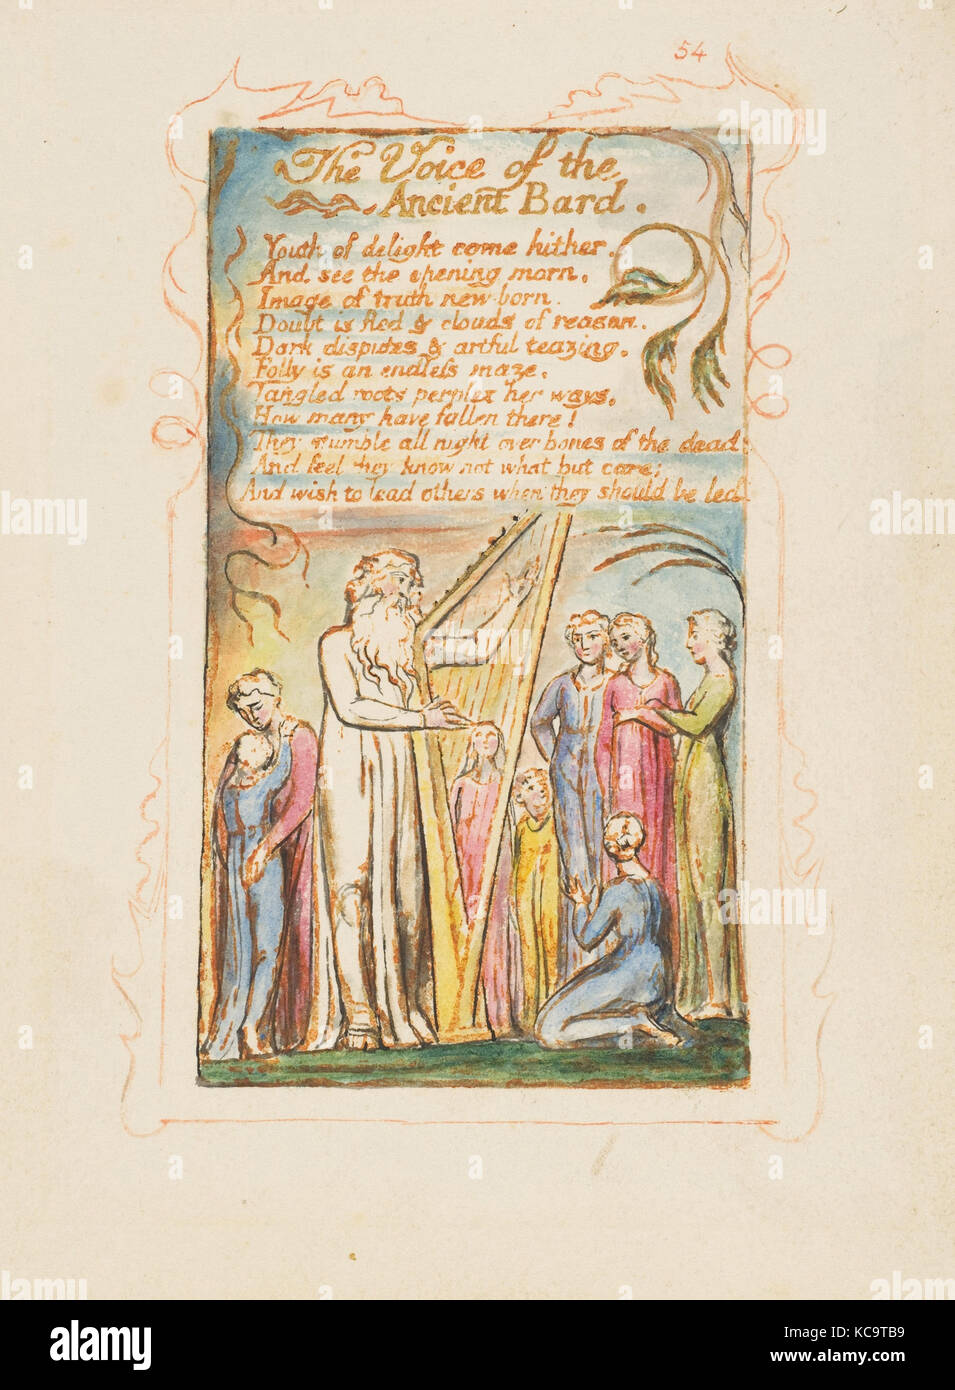 54
The Voice of the
Ancient Bard.
Youth of delight come hither.
And see the opening morn,
Image of truth new-born.
Doubt is fled & clouds of reason.
Dark disputes & artful teazing.
Folly is an endless maze,
Tangled roots perplex her ways,
How many have fallen there!
They stumble all night over bones of the dead;
And feel they know not what but care;
And wish to lead others when they should be led.
alamy
alamy
alamy
alamy
Image ID: KC9TB9
www.alamy.com